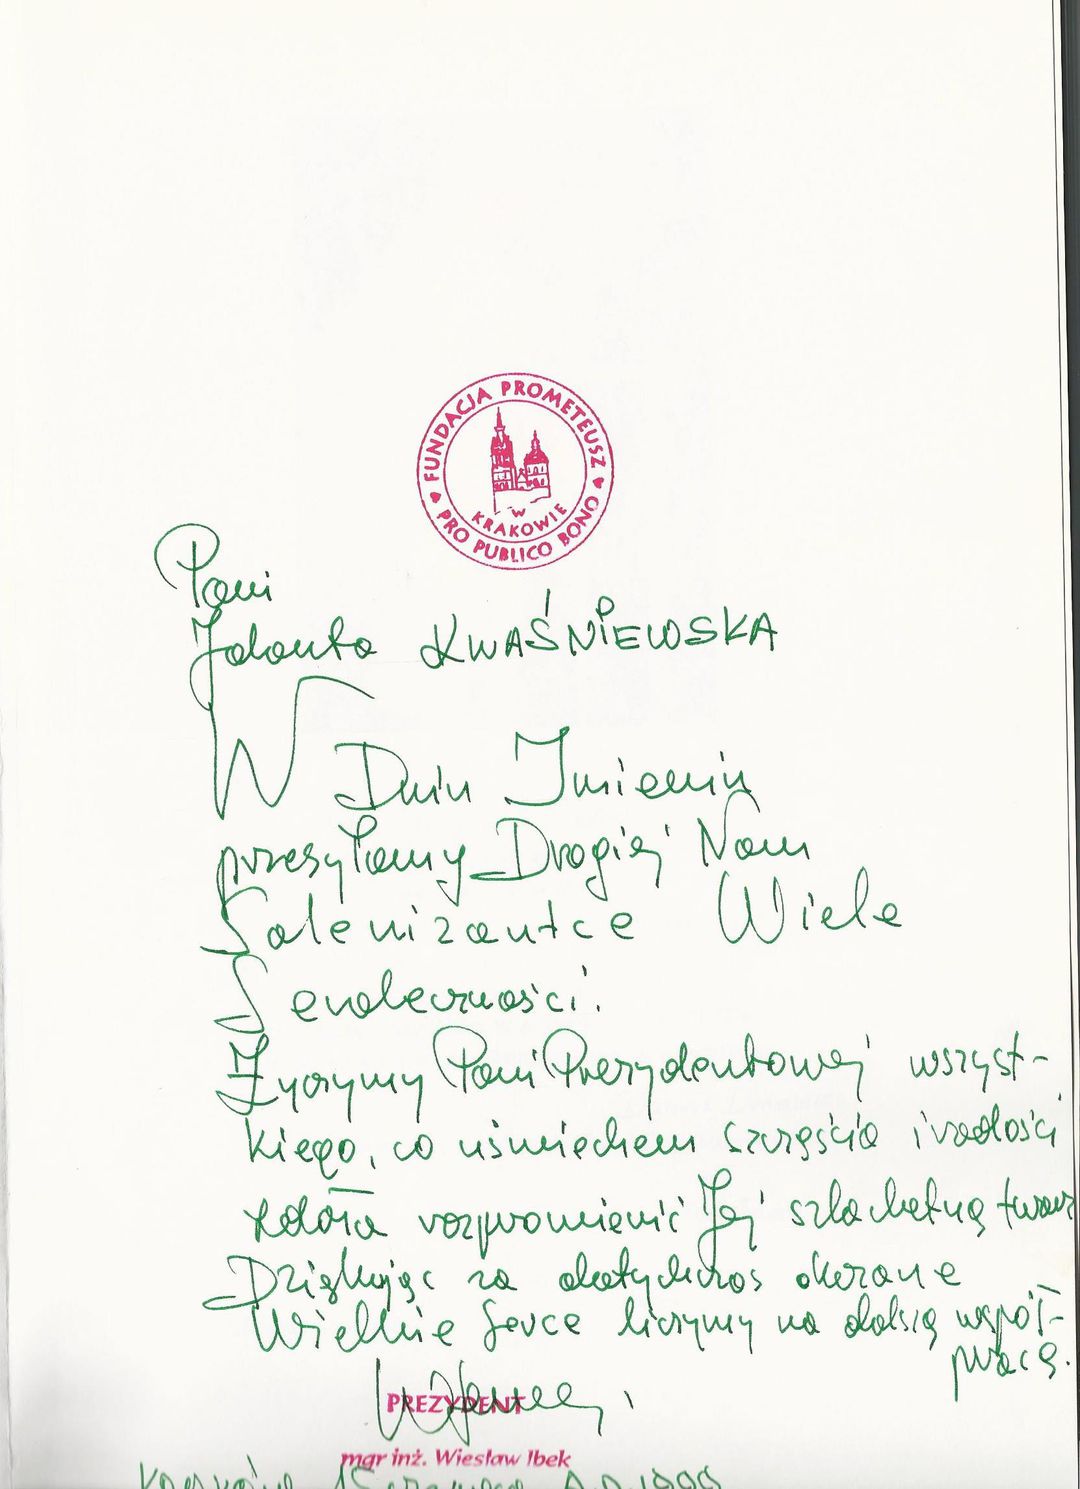 FUNDACJA PROMETEUSZ
PRO PUBLICO BONO
W
KRAKOWIE
Pani
Jolanta KWAŚNIEWSKA
W Dniu Imienin
przesyłamy Drogiej Nam
Solenizantce Wiele
Serdeczności.
Życzymy Pani Prezydentowej wszyst-
kiego, co uśmiechem szczęścia i radości
zdoła rozpromienić Jej szlachetną twarz
Dziękując za dotychczas okazane
Wielkie Serce liczymy na dalszą współ-
pracę.
PREZYDENT
mgr inż. Wiesław Ibek
Kraków 15 czerwca A.D. 1999